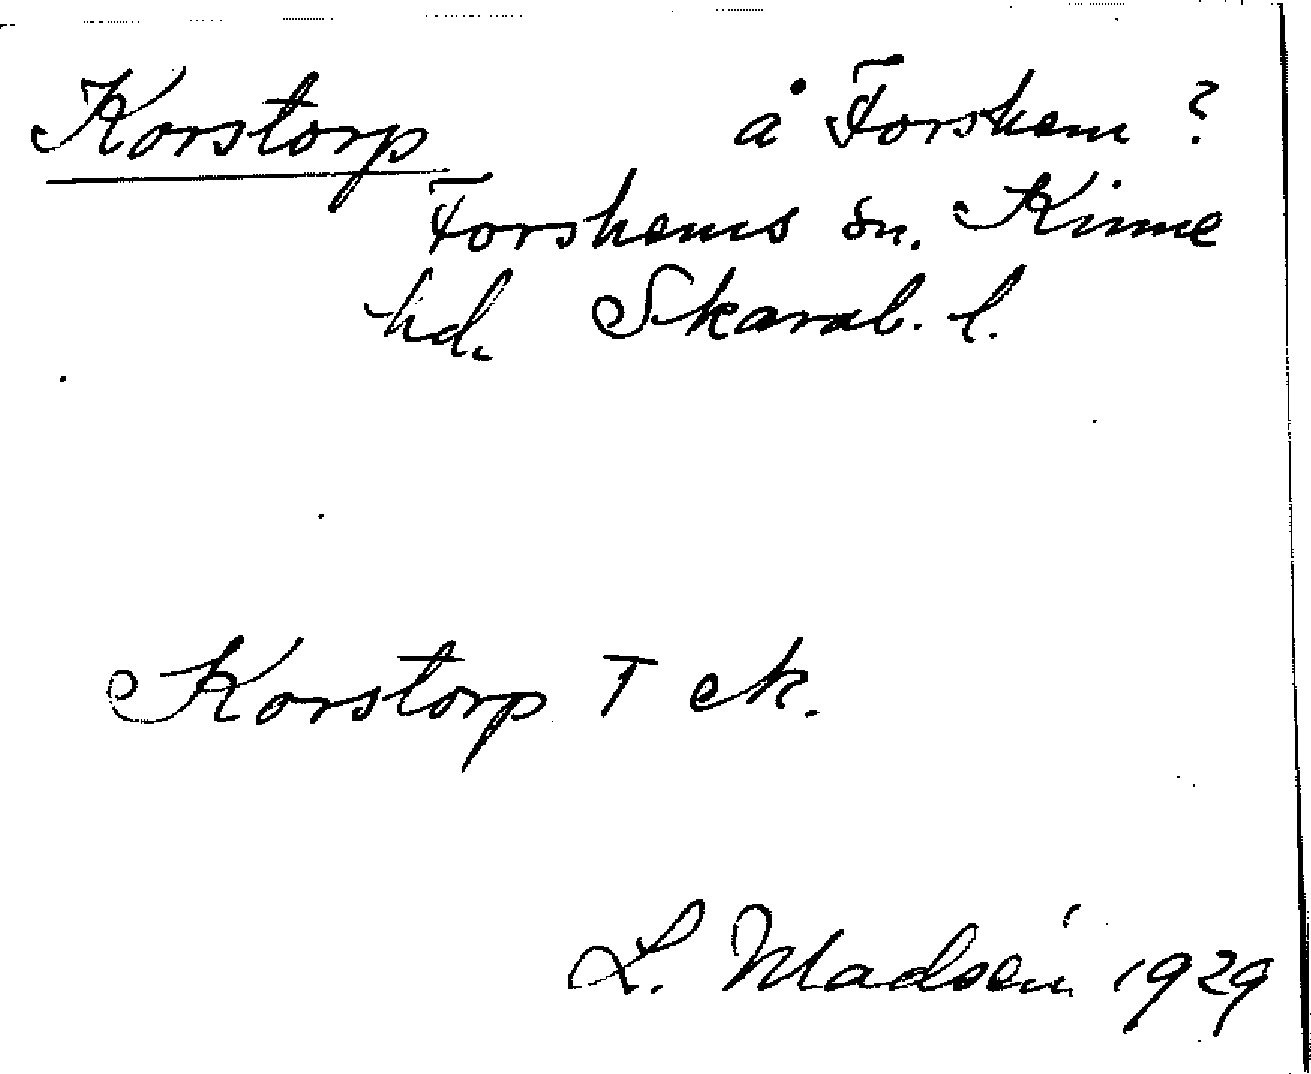 Korstorp å Forshem ?
Forshems sn. Kinne
hd. Skarab. l.
Korstorp T ek.
L. Madsén 1929